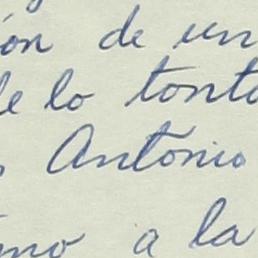 ón de un
de lo tonto
Antonio
mo a la